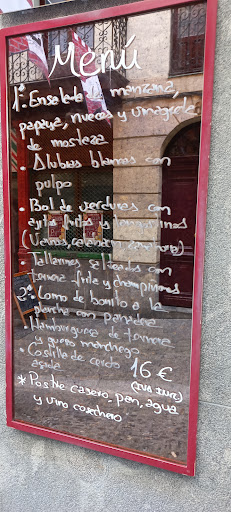 Menú
1º. Ensalada manzana,
papaya, nueces y vinagreta
de mostaza
• Alubias blancas con
pulpo
• Bol de verduras con
ajillo fritos y langostinos
(Huevos, calabacín, zanahoria)
• Tallarines salteados con
ternera frita y champiñones
2º • Lomo de bonito a la
plancha con panadera
• Hamburguesa de ternera
y queso manchego
• Costilla de cerdo
asada
16 €
(IVA INC)
* Postre casero, pan, agua
y vino cosechero